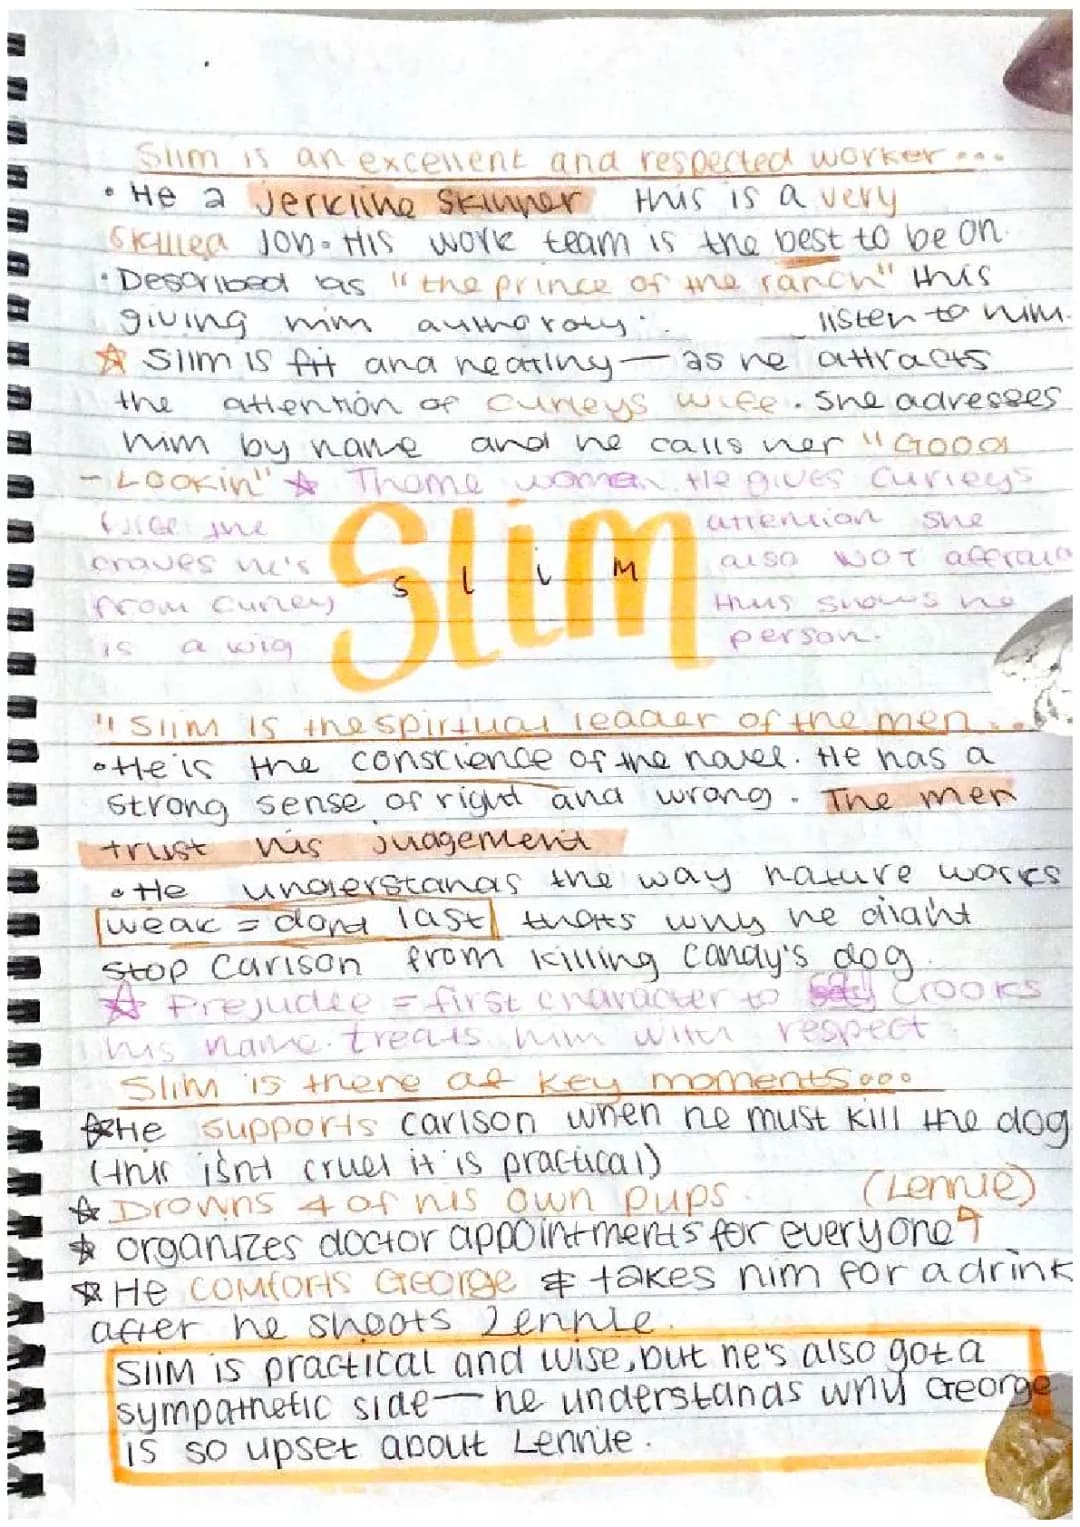 Slim is an excellent and respected worker...
• He a jerkline skinner this is a very
skilled job. His work team is the best to be on.
• Described as "the prince of the ranch" this
giving him authoroty. listen to him.
☆ Slim is fit and heatlhy — as he attracts
the attention of curleys wife. She adresses
him by name and he calls her "GOOd
- LOOKin" ☆ Thome woman. He gives Curleys
wife the attention she
craves he's also NOT affraid
from Curley thus shows he
is a wig person.
Slim
S l i M
"Slim is the spirtual leader of the men...
• He is the conscience of the novel. He has a
strong sense of right and wrong. The men
trust his judgement
• He understands the way nature works
weak = dont last thats why he didnt
stop Carlson from killing Candy's dog.
☆ Prejudice = first character to Crooks
his name. treats him with respect.
Slim is there at key moments...
☆ He supports carlson when he must kill the dog
(this isnt cruel it is practical)
☆ Drowns 4 of his own pups. (Lennie)
☆ organizes doctor appointments for everyone
☆ He comforts George & takes him for a drink
after he shoots Lennie.
SliM is practical and wise, but he's also got a
sympathetic side — he understands why George
is so upset about Lennie.